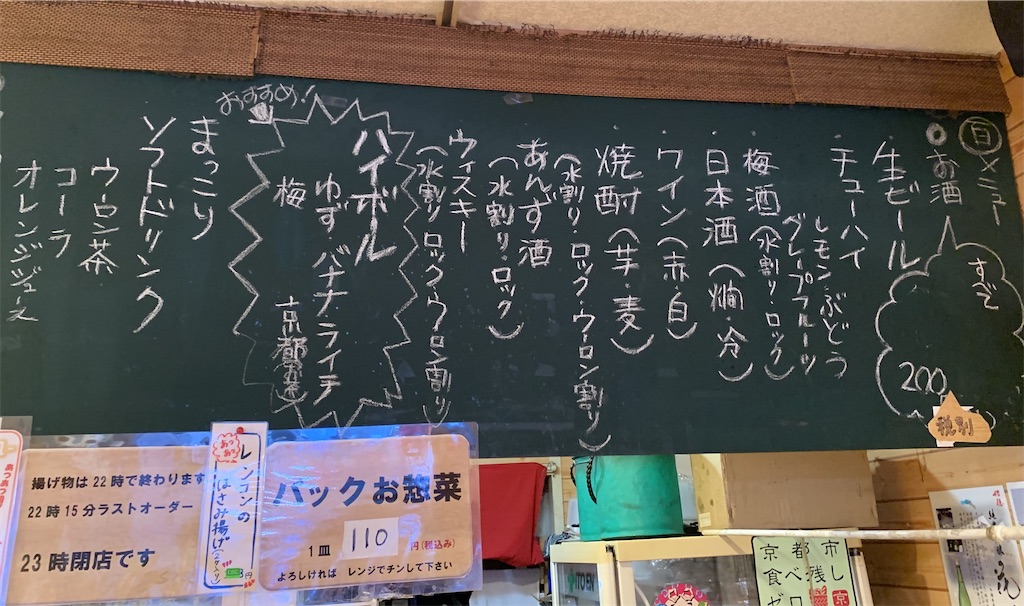 ㊐メニュー
◎お酒
すべて
200
税別
・生ビール
・チューハイ
レモン・ぶどう
グレープフルーツ
・梅酒(水割り・ロック)
・日本酒(燗・冷)
・ワイン(赤・白)
・焼酎(芋・麦)
(水割り・ロック・ウーロン割り)
あんず酒
(水割り・ロック)
ウィスキー
(水割り・ロック・ウーロン割り)
おすすめ!
ハイボール
ゆず・バナナ・ライチ
梅
まっこり
ソフトドリンク
ウーロン茶
コーラ
オレンジジュース
揚げ物は22時で終わります
22時15分ラストオーダー
23時閉店です
あつあつ
レンコンの
はさみ揚げ
円
パックお惣菜
1皿 110 円(税込み)
よろしければ レンジでチンして下さい
ITO EN